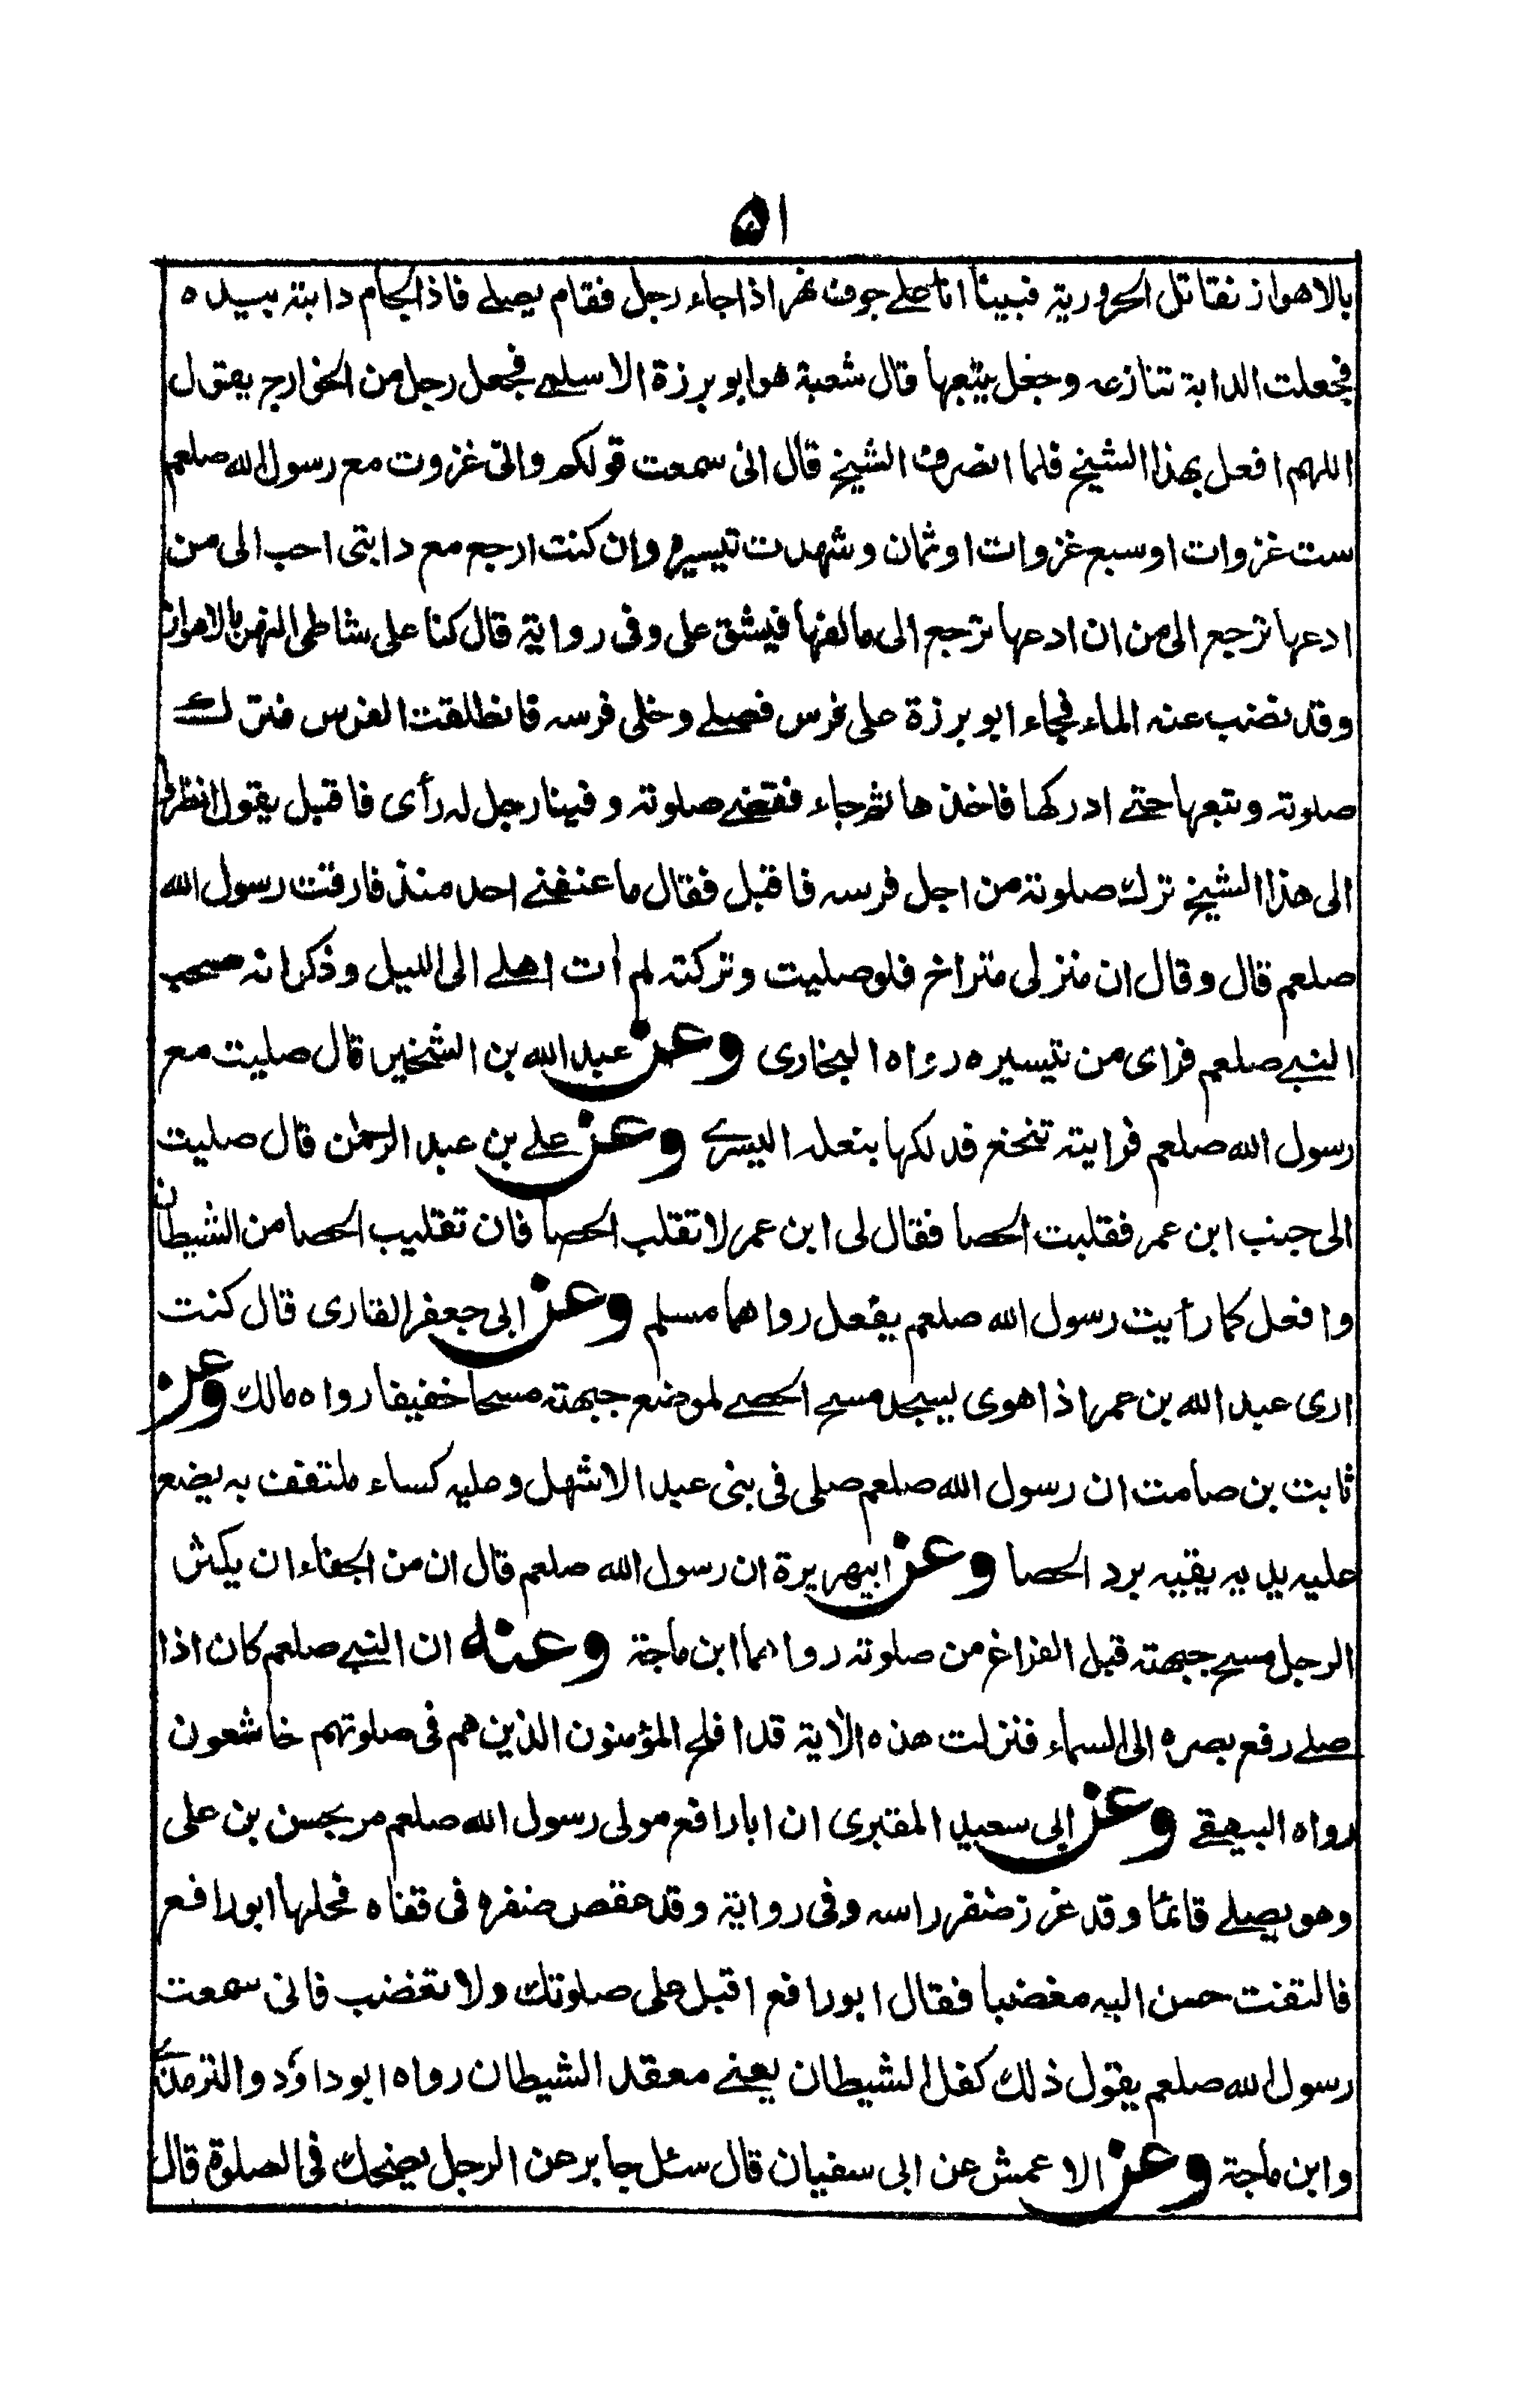 ۵۱
بالاهواز نقاتل الحرورية فبينا انا على جرف نهر اذا جاء رجل فقام يصلے فاذا لجام دابته بيده
فجعلت الدابة تنازعه وجعل يتبعها قال شعبة هو ابو برزة الاسلمے فجعل رجل من الخوارج يقول
اللهم افعل بهذا الشيخ فلما انصرف الشيخ قال انى سمعت قولكم وانى غزوت مع رسول الله صلعم
ست غزوات او سبع غزوات او ثمان وشهدت تيسيره وان كنت ارجع مع دابتى احب الى من
ادعها ترجع الى من ان ادعها ترجع الى مالفها فيشق على وفى رواية قال كنا على شاطى النهر بالاهواز
وقد نضب عنه الماء فجاء ابو برزة على فرس فصلے وخلى فرسه فانطلقت الفرس فترك
صلوته وتبعها حتے ادركها فاخذها ثم جاء فقضے صلوته وفينا رجل له رأى فاقبل يقول انظروا
الى هذا الشيخ ترك صلوته من اجل فرسه فاقبل فقال ما عنفنے احد منذ فارقت رسول الله
صلعم قال وقال ان منزلى متراخ فلو صليت وتركته لم اٰت اهلے الى الليل وذكر انه صحب
النبے صلعم فراى من تيسيره رواه البخارى وعن عبد الله بن الشخير قال صليت مع
رسول الله صلعم فرايته تنخع فدلكها بنعله اليسرے وعن علے بن عبد الرحمٰن قال صليت
الى جنب ابن عمر فقلبت الحصا فقال لى ابن عمر لا تقلب الحصا فان تقليب الحصا من الشيطان
وافعل كما رأيت رسول الله صلعم يفعل رواهما مسلم وعن ابى جعفر القارى قال كنت
ارى عبد الله بن عمر اذا هوى ليسجد مسح الحصے لموضع جبهته مسحا خفيفا رواه مالك وعن
ثابت بن صامت ان رسول الله صلعم صلى فى بنى عبد الاشهل وعليه كساء ملتفف به يضع
عليه يديه يقيه برد الحصا وعن ابيهريرة ان رسول الله صلعم قال ان من الجفاء ان يكثر
الرجل مسح جبهته قبل الفراغ من صلوته رواهما ابن ماجة وعنه ان النبے صلعم كان اذا
صلے رفع بصره الى السماء فنزلت هذه الاٰية قد افلح المؤمنون الذين هم فى صلوتهم خاشعون
رواه البيهقے وعن ابى سعيد المقبرى ان ابا رافع مولى رسول الله صلعم مر بحسن بن على
وهو يصلے قائما وقد غرز ضفر راسه وفى رواية وقد عقص ضفره فى قفاه فحلها ابو رافع
فالتفت حسن اليه مغضبا فقال ابو رافع اقبل على صلوتك ولا تغضب فانى سمعت
رسول الله صلعم يقول ذلك كفل الشيطان يعنے مقعد الشيطان رواه ابو داؤد والترمذے
وابن ماجة وعن الاعمش عن ابى سفيان قال سئل جابر عن الرجل يضحك فى الصلوة قال